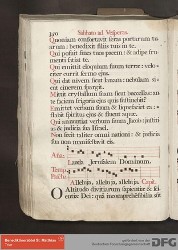 350 Sabbato ad Vesperas.
Quoniam confortavit seras portarum tu-
arum: benedixit filiis tuis in te.
Qui posuit fines tuos pacem: & adipe fru-
menti satiat te.
Qui emittit eloquium suum terræ: velo-
citer currit sermo ejus.
Qui dat nivem sicut lanam: nebulam si-
cut cinerem spargit.
Mittit crystallum suam sicut buccellas: an-
te faciem frigoris ejus quis sustinebit?
Emittet verbum suum, & liquefaciet ea:
flabit spiritus ejus & fluent aquæ.
Qui annuntiat verbum suum Jacob: justiti-
as & judicia sua Israel.
Non fecit taliter omni nationi: & judicia
sua non manifestavit eis.
Lauda Jerusalem Dominum.
Temp.
Alleluja, alleluja, alleluja. Capit.
O Altitudo divitiarum sapientiæ & sci-
entiæ Dei: quà incomprehensibilia sunt
DFG